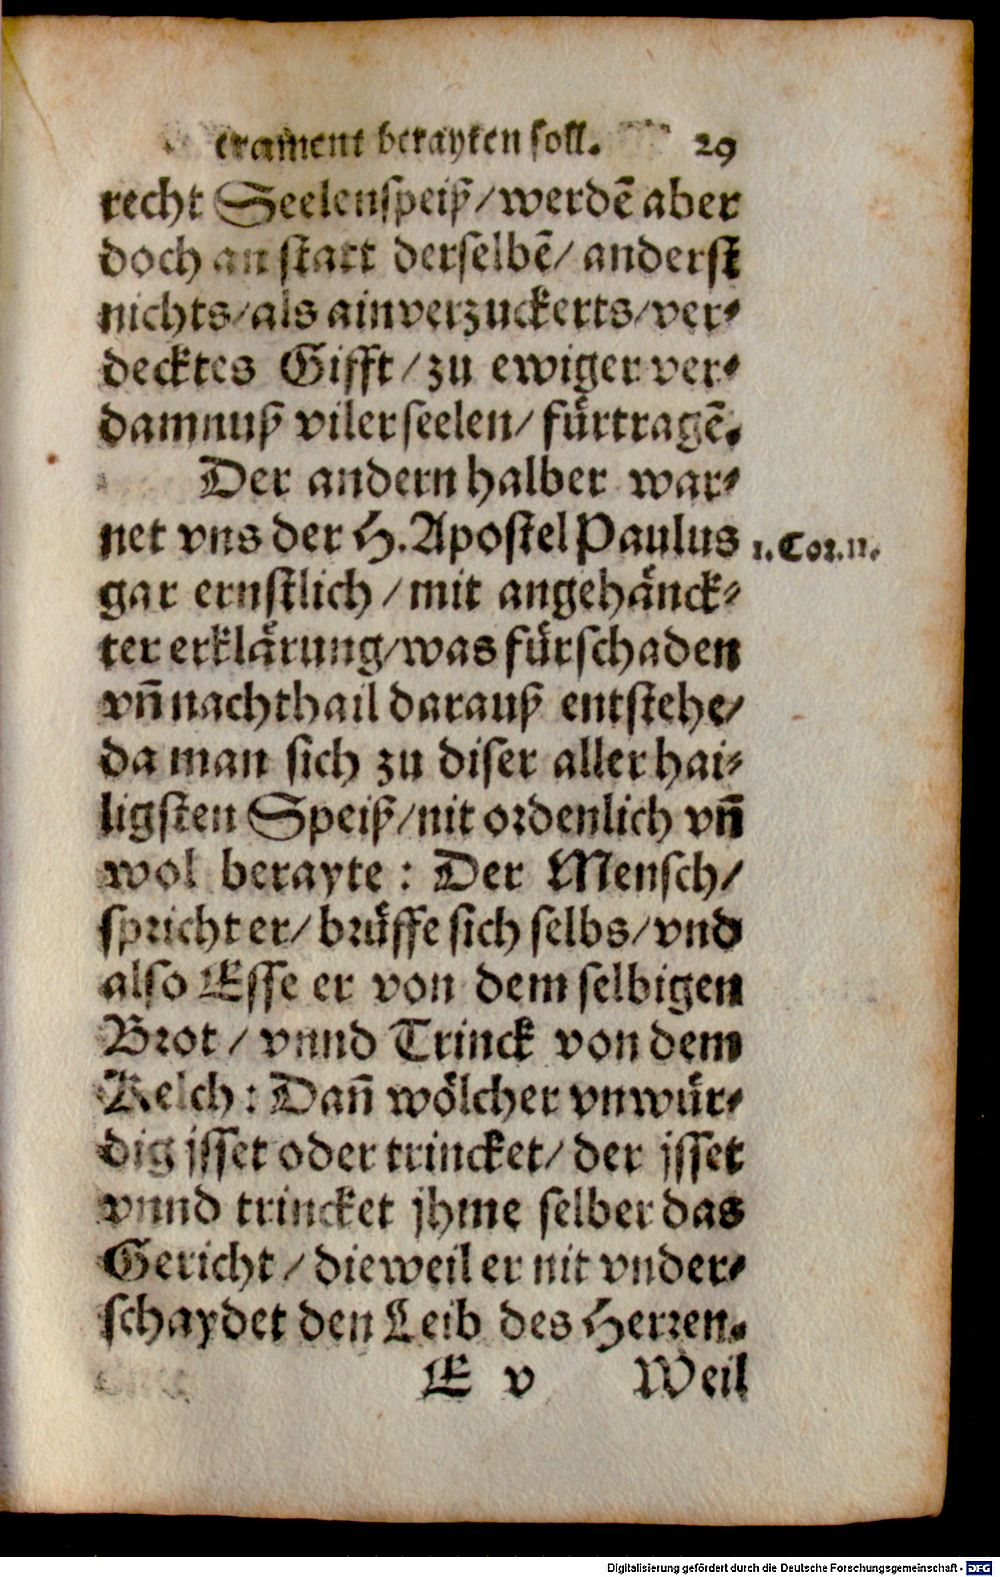 crament berayten soll. 29
recht Seelenspeiß/werdē aber
doch an statt derselbē/ anderst
nichts/als ain verzuckerts/ver-
decktes Gifft/zu ewiger ver-
damnuß viler seelen/ fürtragē.
Der andern halber war-
net vns der H. Apostel Paulus 1. Cor. 11.
gar ernstlich/mit angehänck-
ter erklärung/was für schaden
vñ nachthail darauß entstehe/
da man sich zu diser aller hai-
ligsten Speiß/nit ordenlich vñ
wol berayte: Der Mensch/
spricht er/ brüffe sich selbs/vnd
also Esse er von dem selbigen
Brot/ vnnd Trinck von dem
Kelch: Dañ wölcher vnwür-
dig jsset oder trincket/ der jsset
vnnd trincket jhme selber das
Gericht/ dieweil er nit vnder-
schaydet den Leib des Herren.
E v Weil
Digitalisierung gefördert durch die Deutsche Forschungsgemeinschaft - DFG